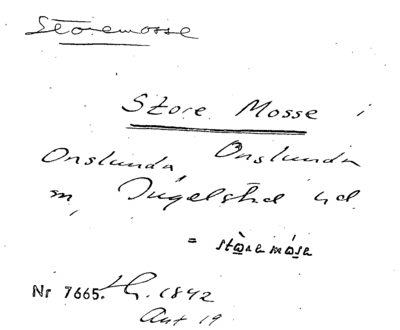 Storemosse
Store Mosse i
Onslunda, Onslunda
sn, Ingelstad hd.
= stòrə mósə
Nr 7665. 1842
Ant 19